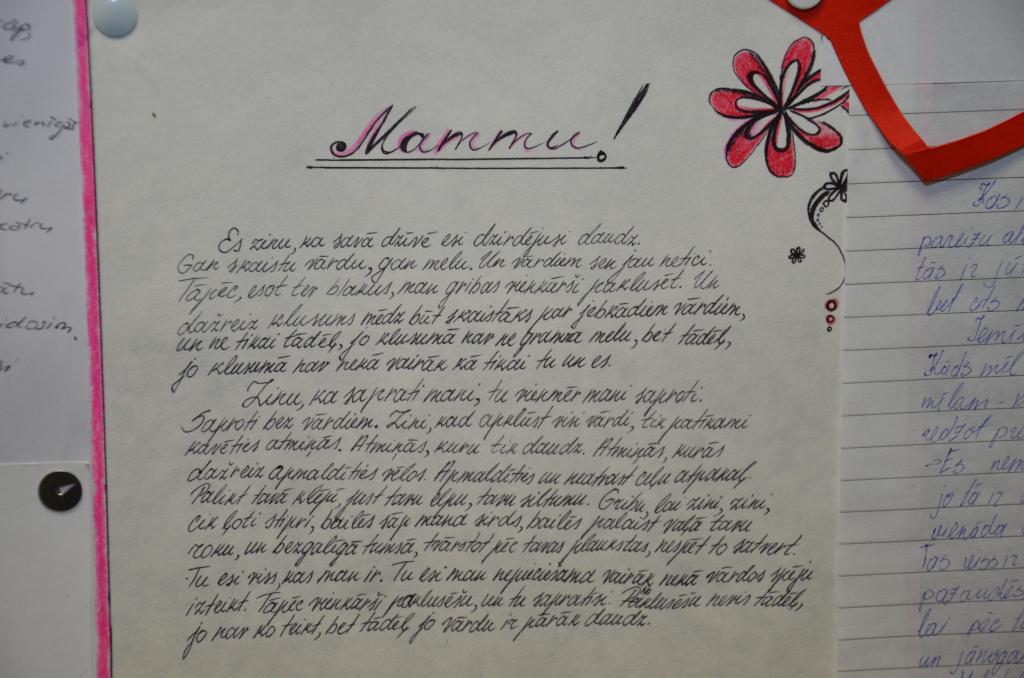 Mammu!
Es zinu, ka savā dzīvē esi dzirdējusi daudz.
Gan skaistu vārdu, gan melu. Un vārdiem sen jau netici.
Tāpēc, esot tev blakus, man gribas vienkārši paklusēt. Un
dažreiz klusums mēdz būt skaistāks par jebkādiem vārdiem,
un ne tikai tādēļ, jo klusumā nav ne grama melu, bet tādēļ,
jo klusumā nav nekā vairāk kā tikai tu un es.
Zinu, ka saprati mani, tu vienmēr mani saproti.
Saproti bez vārdiem. Zini, kad apklust visi vārdi, tik patīkami
kavēties atmiņās. Atmiņās, kuru tik daudz. Atmiņās, kurās
dažreiz apmaldīties vēlos. Apmaldīties un neatrast ceļu atpakaļ.
Palikt tavā klēpī, just tavu elpu, tavu siltumu. Gribu, lai zini, zini,
cik ļoti stipri, bailēs sāp manā sirds, bailēs palaist vaļā tavu
roku, un bezgalīgā tumsā, tvarstot pēc tavas plaukstas, nespēt to satvert.
Tu esi viss, kas man ir. Tu esi man nepieciešama vairāk nekā vārdos spēju
izteikt. Tāpēc vienkārši paklusēšu, un tu sapratīsi. Paklusēšu nevis tādēļ,
jo nav ko teikt, bet tādēļ, jo vārdu ir pārāk daudz.
vienīgā
Kas
pareizu
tās ir
bet cits
Kāds mīl
mīlam -
redzot
→Es
jo tā ir
vienāda
Tas viss ir
pazaudēs
lai pēc
un